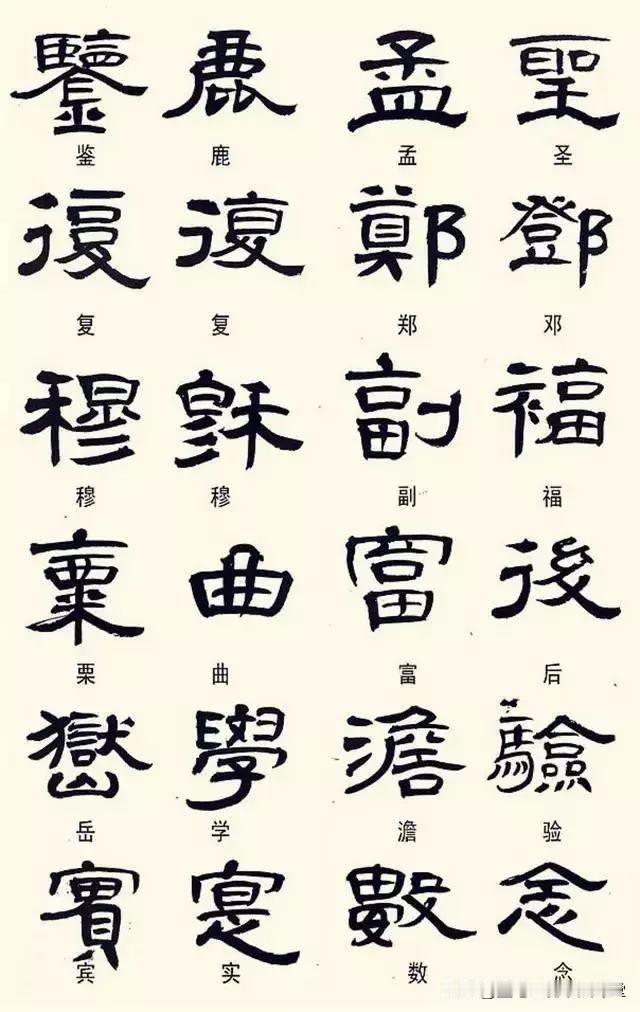 鑒 鹿 孟 聖
鉴 鹿 孟 圣
復 復 鄭 鄧
复 复 郑 邓
穆 穆 副 福
穆 穆 副 福
曲 富 後
栗 曲 富 后
嶽 學 澹 驗
岳 学 澹 验
賓 寔 數 念
宾 实 数 念